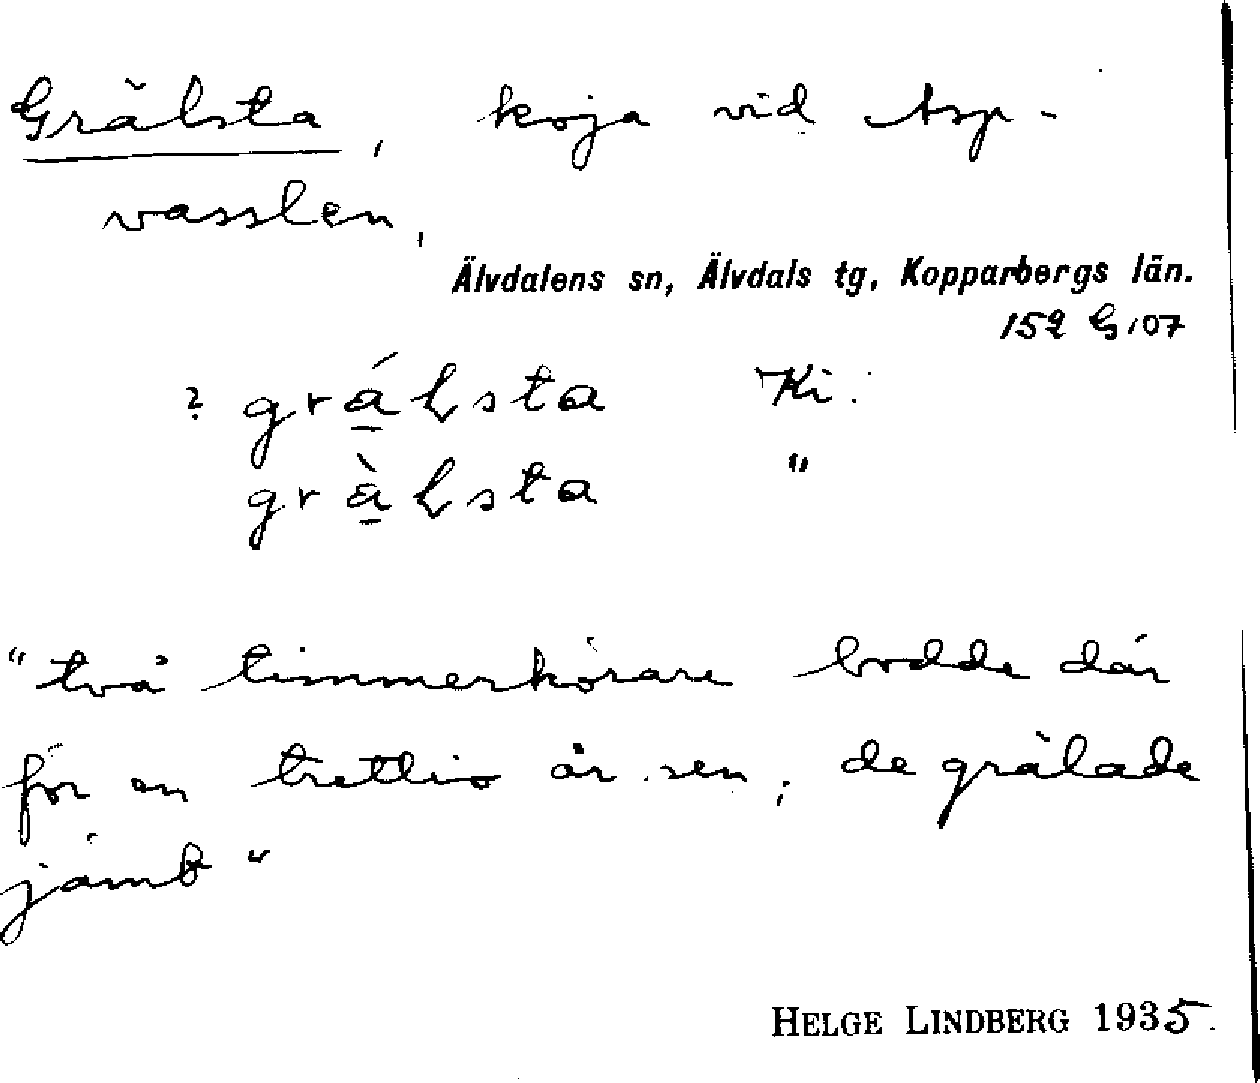 Grälsta, koja vid Asp-
vasslen,
Älvdalens sn, Älvdals tg, Kopparbergs län.
152 G 107
? grálsta Ki.
gràlsta "
"två timmerkörare bodde där
för en trettio år sen, de grälade
jämt"
HELGE LINDBERG 1935.